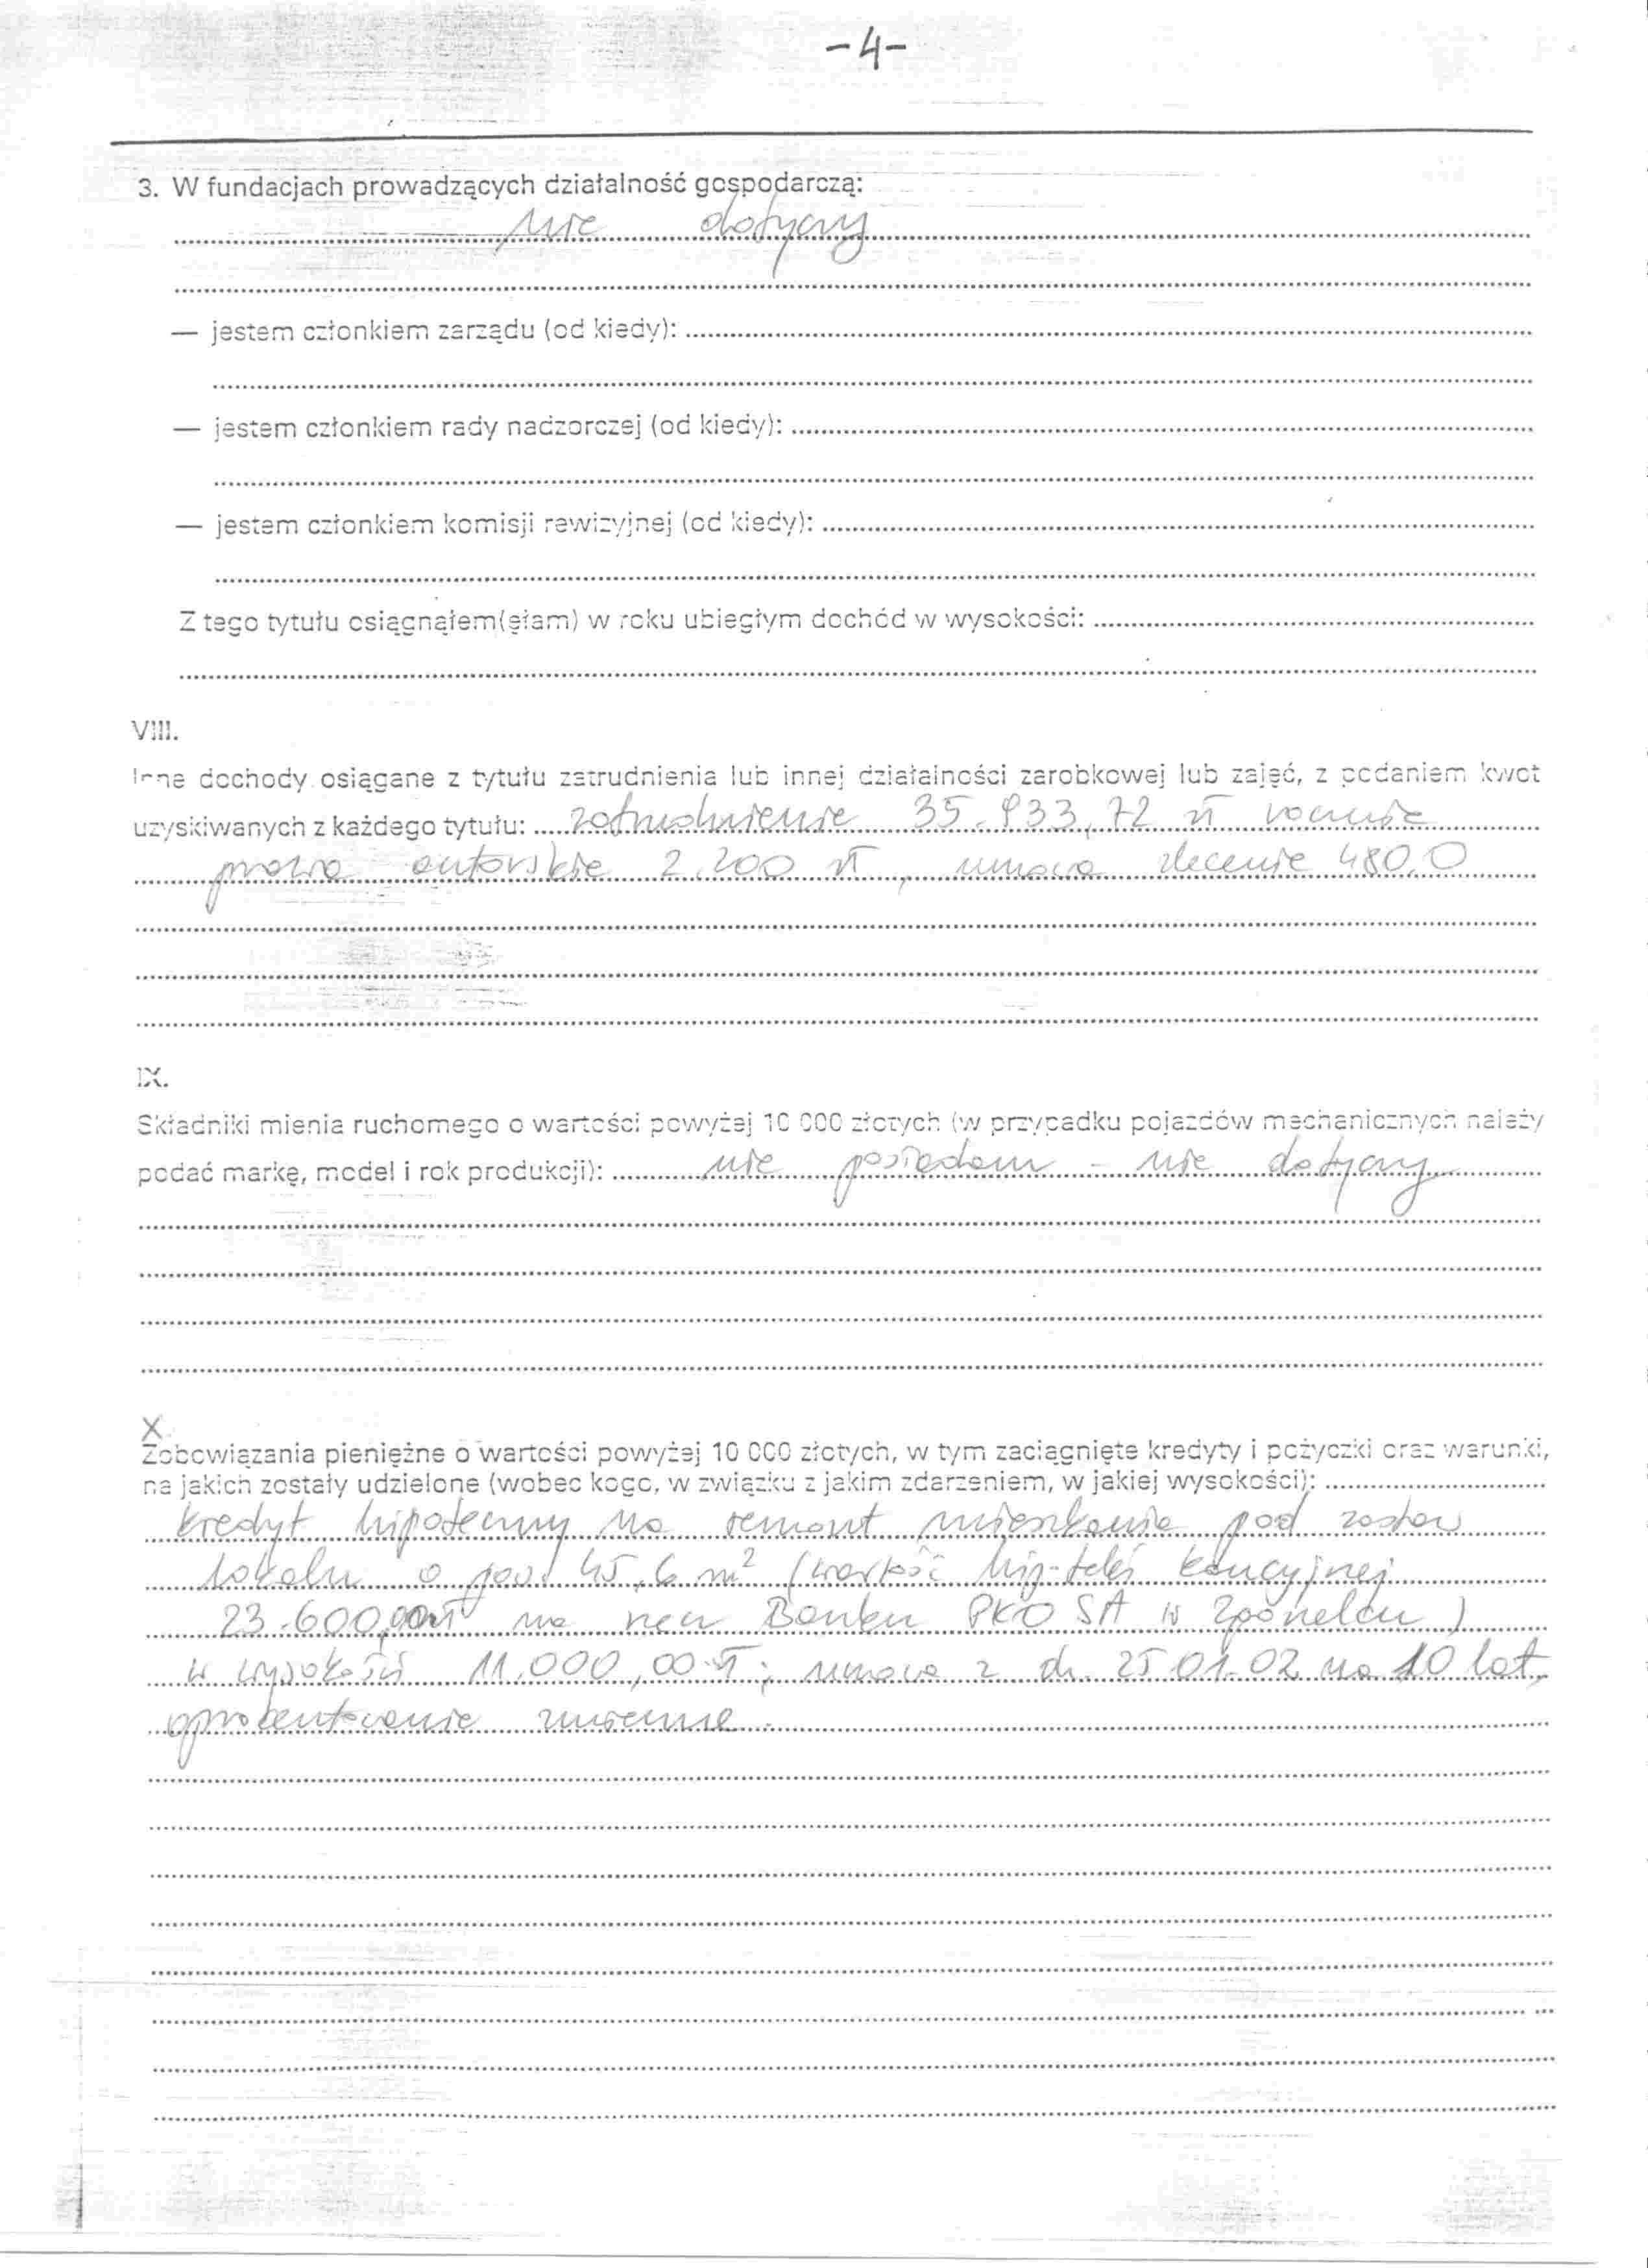 -4-
3. W fundacjach prowadzących działalność gospodarczą:
nie dotyczy
— jestem członkiem zarządu (od kiedy):
— jestem członkiem rady nadzorczej (od kiedy):
— jestem członkiem komisji rewizyjnej (od kiedy):
Z tego tytułu osiągnąłem(ęłam) w roku ubiegłym dochód w wysokości:
VIII.
Inne dochody osiągane z tytułu zatrudnienia lub innej działalności zarobkowej lub zajęć, z podaniem kwot
uzyskiwanych z każdego tytułu: zatrudnienie 35.933,72 zł rocznie
prawa autorskie 2.200 zł, umowa zlecenie 480,0
IX.
Składniki mienia ruchomego o wartości powyżej 10 000 złotych (w przypadku pojazdów mechanicznych należy
podać markę, model i rok produkcji): nie posiadam - nie dotyczy
X.
Zobowiązania pieniężne o wartości powyżej 10 000 złotych, w tym zaciągnięte kredyty i pożyczki oraz warunki,
na jakich zostały udzielone (wobec kogo, w związku z jakim zdarzeniem, w jakiej wysokości):
kredyt hipoteczny na remont mieszkania pod zastaw
lokalu o pow. 45,6 m² (wartość hipoteki kaucyjnej
23.600,00 zł na rzecz Banku PKO SA w )
w wysokości 11.000,00 zł; umowa z dn. 25.01.02 na 10 lat,
oprocentowanie zmienne.